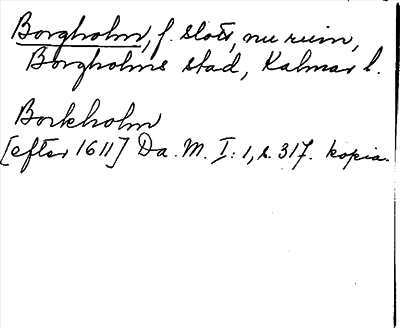 Borgholm, f. slott, nu ruin,
Borgholms stad, Kalmar l.
Borkholm
[efter 1611] Da. M. I: 1, s. 317. kopia.